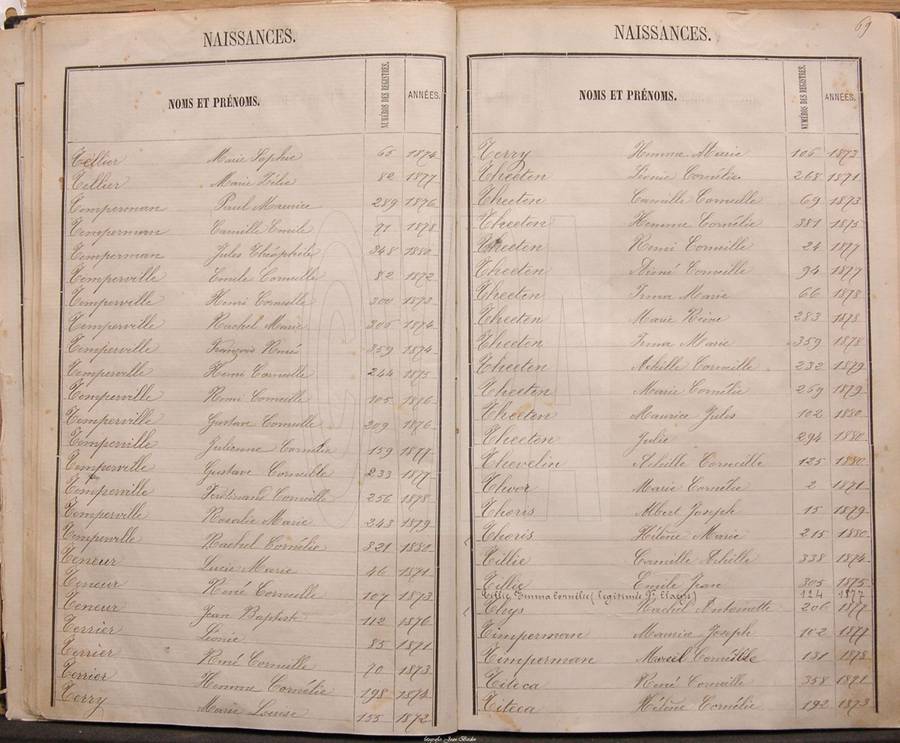 69
NAISSANCES.
NOMS ET PRÉNOMS. NUMÉROS DES REGISTRES. ANNÉES.
Tellier Marie Sophie 65 1874
Tellier Marie Zélie 82 1877
Temperman Paul Maurice 289 1876
Temperman Camille Emile 71 1878
Temperman Jules Théophile 348 1880
Temperville Emile Corneille 82 1872
Temperville Henri Corneille 300 1873
Temperville Rachel Marie 305 1874
Temperville François René 359 1874
Temperville Remi Corneille 244 1875
Temperville Remi Corneille 105 1876
Temperville Gustave Corneille 209 1876
Temperville Julienne Cornélie 159 1877
Temperville Gustave Corneille 233 1877
Temperville Ferdinand Corneille 256 1878
Temperville Rosalie Marie 243 1879
Temperville Rachel Cornélie 321 1880
Teneur Lucie Marie 46 1871
Teneur René Corneille 107 1873
Teneur Jean Baptiste 112 1876
Terrier Léonie 85 1871
Terrier René Corneille 70 1873
Terrier Hemma Cornélie 198 1874
Terry Marie Louise 155 1872
NAISSANCES.
NOMS ET PRÉNOMS. NUMÉROS DES REGISTRES. ANNÉES.
Terry Hemma Marie 106 1873
Theeten Léonie Cornélie 268 1871
Theeten Camille Corneille 69 1873
Theeten Hemma Cornélie 381 1875
Theeten Remi Corneille 24 1877
Theeten Aimé Corneille 94 1877
Theeten Irma Marie 66 1878
Theeten Marie Reine 283 1878
Theeten Irma Marie 359 1878
Theeten Achille Corneille 232 1879
Theeten Marie Cornélie 259 1879
Theeten Maurice Jules 102 1880
Theeten Julie 294 1880
Thevelin Achille Corneille 125 1880
Thevor Marie Cornélie 2 1871
Thoris Albert Joseph 15 1879
Thoris Hélène Marie 215 1880
Tillie Camille Achille 338 1874
Tillie Emile Jean 305 1875
Tillie Emma Cornélie (légitimée 124 1877
Thys Rachel Antoinette 206 1877
Timperman Maurice Joseph 102 1877
Timperman Marcel Corneille 131 1878
Titeca René Corneille 358 1871
Titeca Hélène Cornélie 192 1873